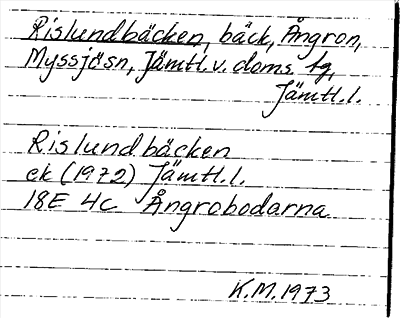 Rislundbäcken, bäck, Ångron,
Myssjösn, Jämtl.v. doms. tg,
Jämtl.l.
Rislundbäcken
ek (1972) Jämtl.l.
18E 4C Ångrobodarna
K.M.1973